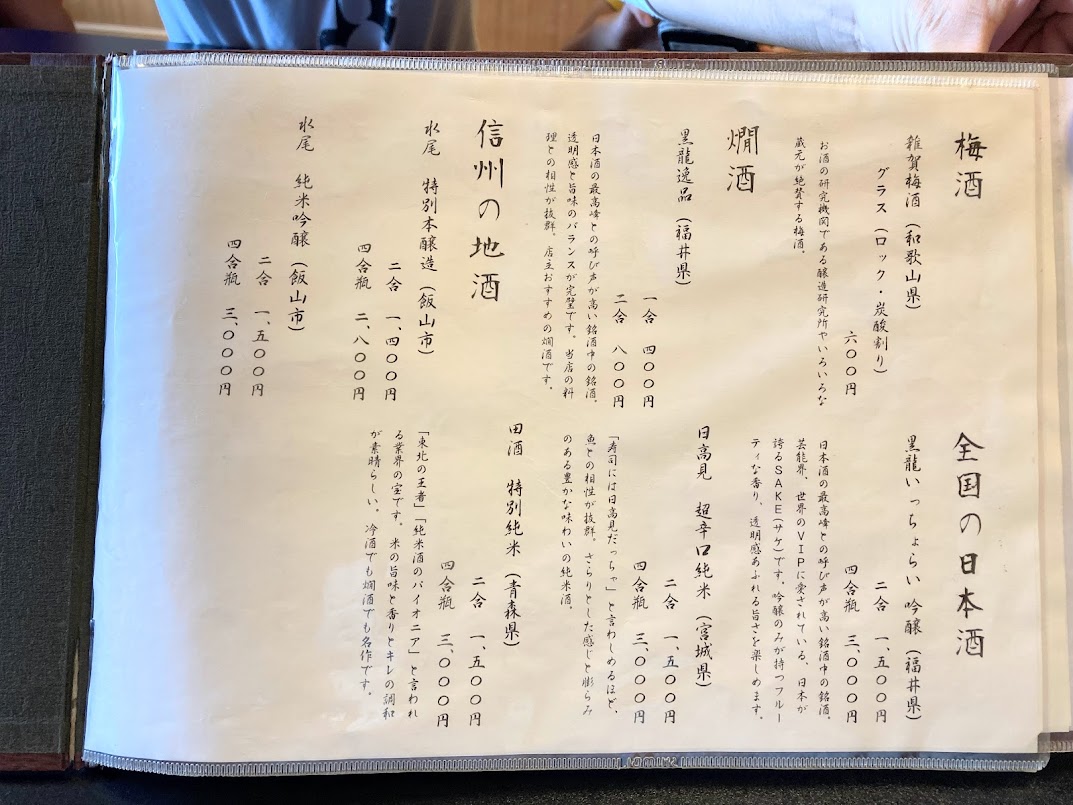 梅酒
雑賀梅酒（和歌山県）
グラス（ロック・炭酸割り）
六〇〇円
お酒の研究機関である醸造研究所やいろいろな
蔵元が絶賛する梅酒。
燗酒
黒龍逸品（福井県）
一合 四〇〇円
二合 八〇〇円
日本酒の最高峰との呼び声が高い銘酒中の銘酒。
透明感と旨味のバランスが完璧です。当店の料
理との相性が抜群。店主おすすめの燗酒です。
信州の地酒
水尾 特別本醸造（飯山市）
二合 一、四〇〇円
四合瓶 二、八〇〇円
水尾 純米吟醸（飯山市）
二合 一、五〇〇円
四合瓶 三、〇〇〇円
全国の日本酒
黒龍いっちょらい 吟醸（福井県）
二合 一、五〇〇円
四合瓶 三、〇〇〇円
日本酒の最高峰との呼び声が高い銘酒中の銘酒。
芸能界、世界のVIPに愛されている、日本が
誇るSAKE(サケ)です。吟醸のみが持つフルー
ティな香り、透明感あふれる旨さを楽しめます。
日高見 超辛口純米（宮城県）
二合 一、五〇〇円
四合瓶 三、〇〇〇円
「寿司には日高見だっちゃ」と言わしめるほど、
魚との相性が抜群。さらりとした感じと膨らみ
のある豊かな味わいの純米酒。
田酒 特別純米（青森県）
二合 一、五〇〇円
四合瓶 三、〇〇〇円
「東北の王者」「純米酒のパイオニア」と言われ
る業界の宝です。米の旨味と香りとキレの調和
が素晴らしい。冷酒でも燗酒でも名作です。